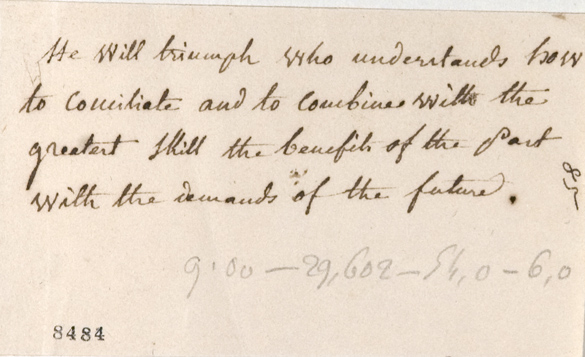 He will triumph who understands how
to conciliate and to combine with the
greatest skill the benefits of the Past
with the demands of the future.
85
9.00 — 29,602 — 54,0 — 6,0
8484